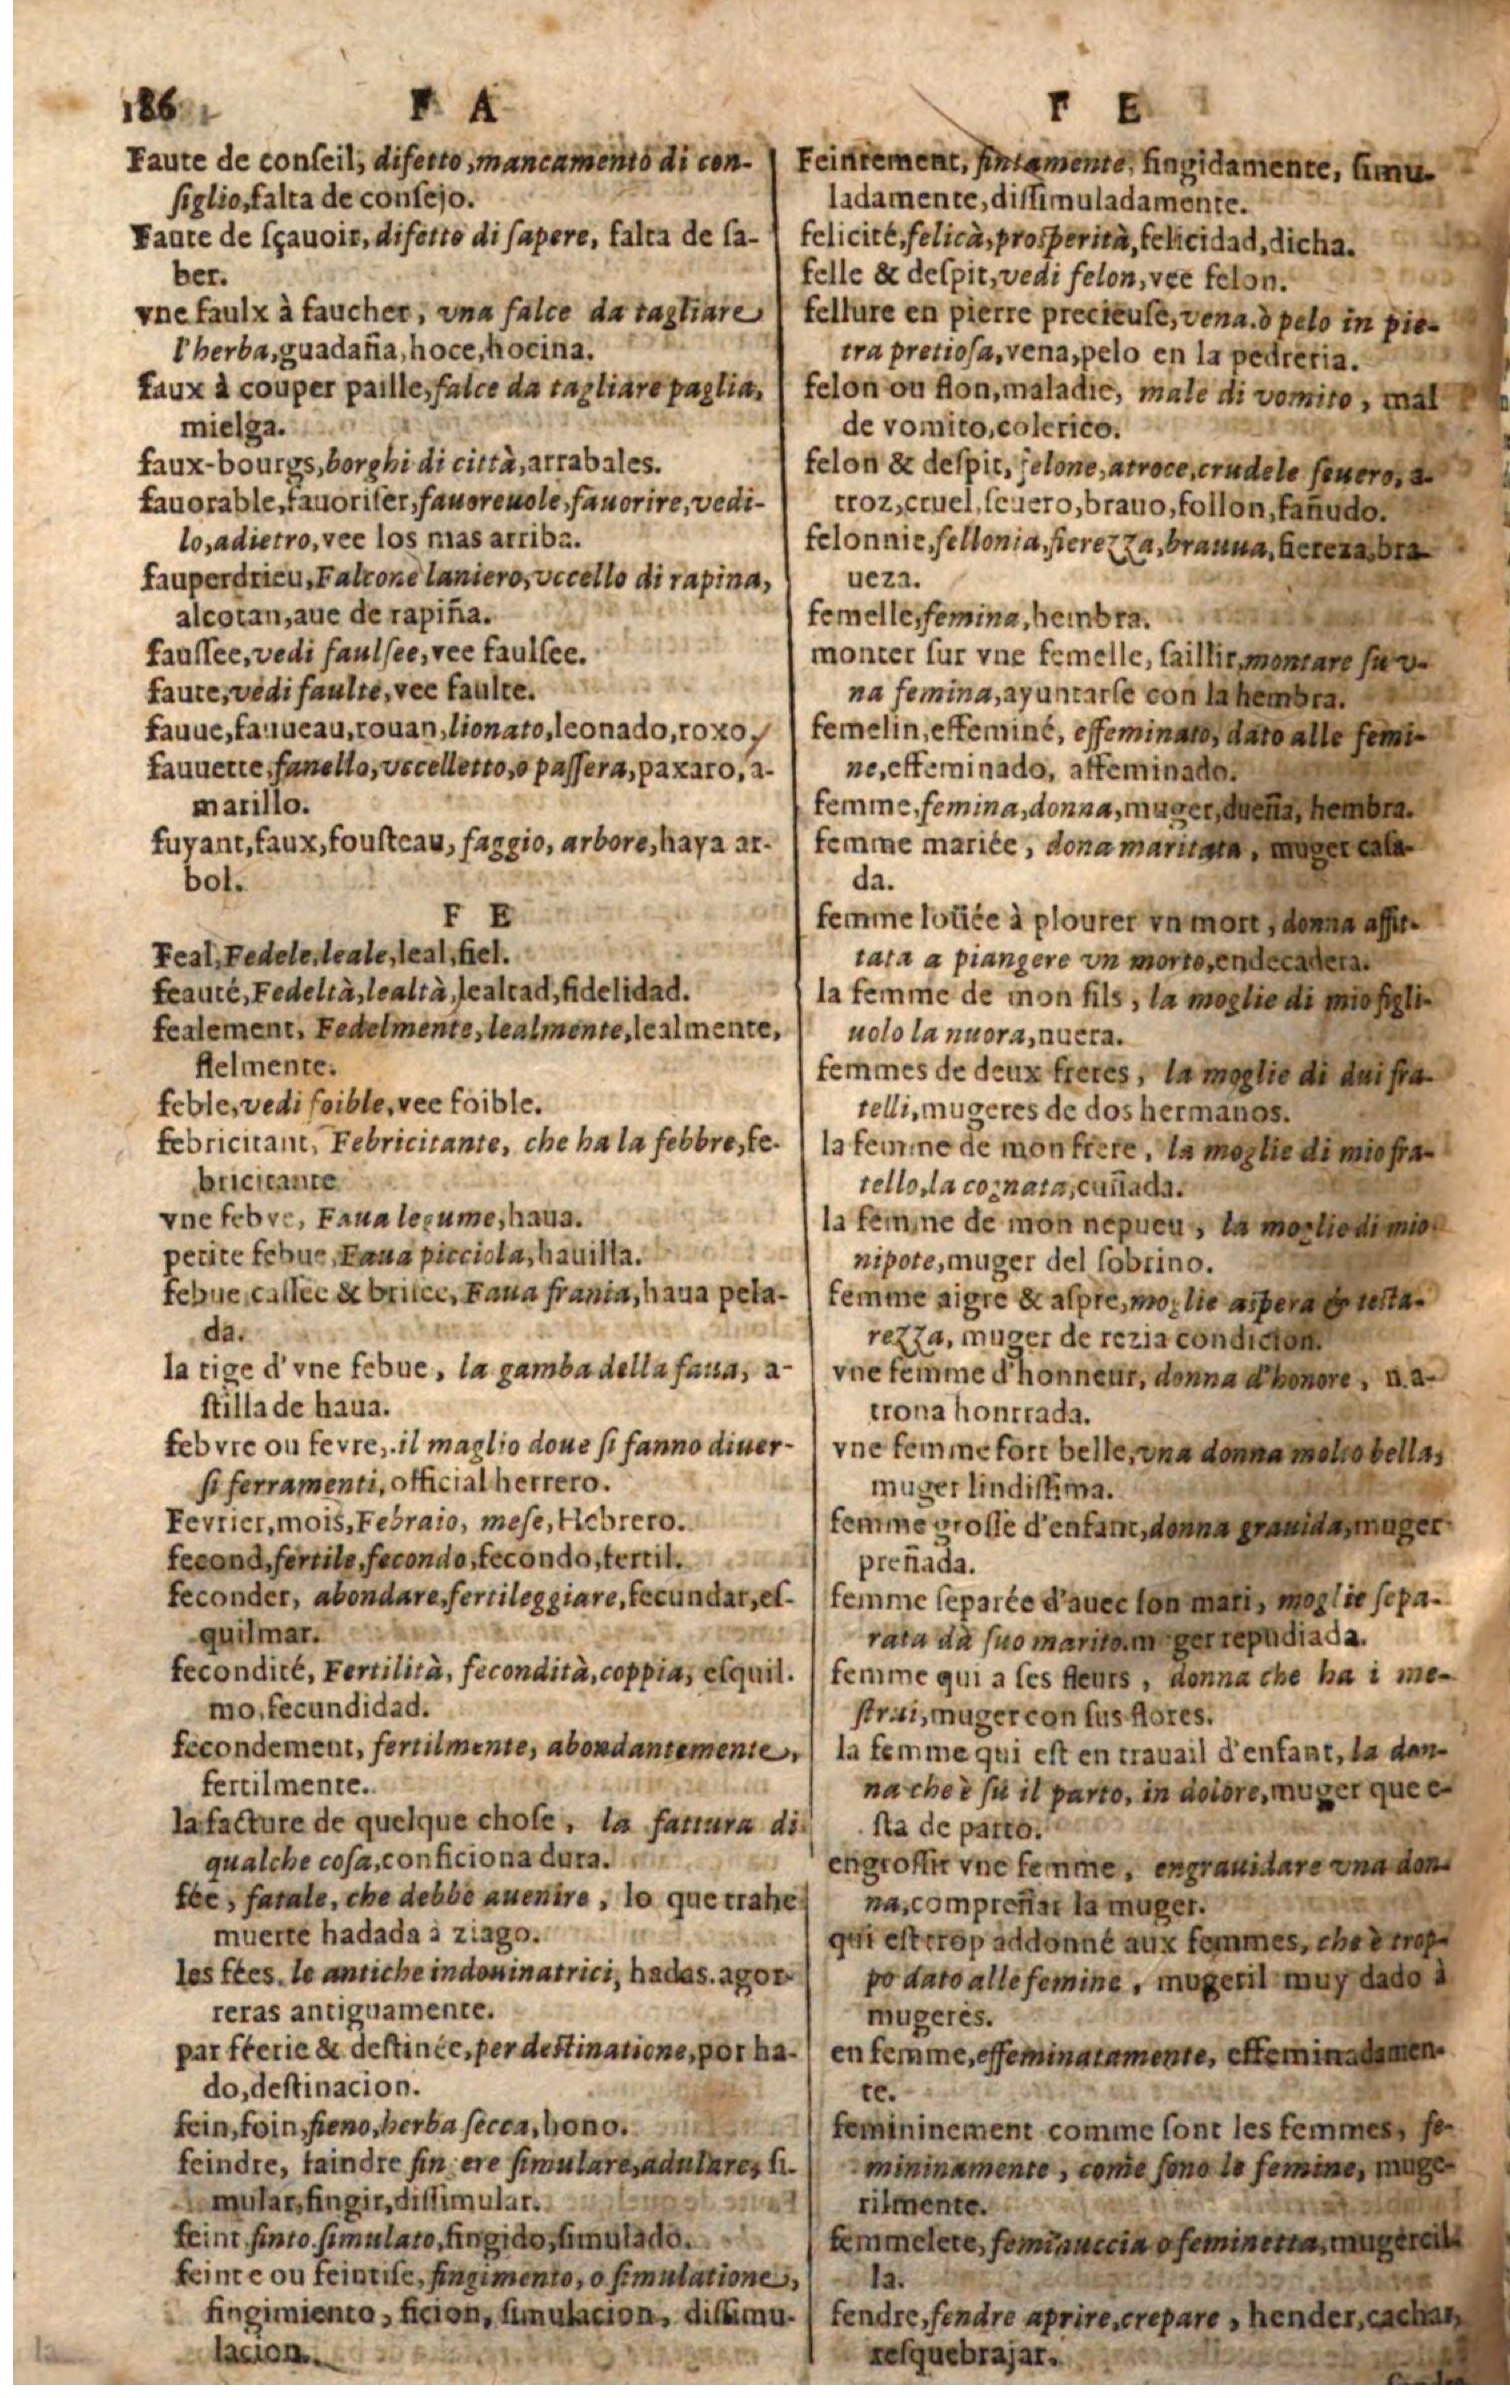 186
F A
Faute de conſeil, difetto, mancamento di con-
ſiglio, falta de conſejo.
Faute de ſçavoir, difetto di ſapere, falta de ſa-
ber.
vne faulx à faucher, vna falce da tagliare
l'herba, guadaña, hoce, hocina.
faux à couper paille, falce da tagliare paglia,
mielga.
faux-bourgs, borghi di città, arrabales.
fauorable, fauoriſer, fauoreuole, fauorire, vedi-
lo, adietro, vee los mas arriba.
fauperdrieu, Falcone laniero, vccello di rapina,
alcotan, aue de rapiña.
fauſſee, vedi faulſee, vee faulſee.
faute, vedi faulte, vee faulte.
fauue, fauueau, rouan, lionato, leonado, roxo,
fauuette, fanello, vccelletto, o paſſera, paxaro, a-
marillo.
fuyant, faux, fouſteau, faggio, arbore, haya ar-
bol.
F E
Feal, Fedele, leale, leal, fiel.
feauté, Fedeltà, lealtà, lealtad, fidelidad.
fealement, Fedelmente, lealmente, lealmente,
fielmente.
feble, vedi foible, vee foible.
febricitant, Febricitante, che ha la febbre, fe-
bricitante
vne febve, Faua legume, haua.
petite febue, Faua picciola, hauilla.
febue caſſee & briſee, Faua frania, haua pela-
da.
la tige d'vne febue, la gamba della faua, a-
ſtilla de haua.
febvre ou fevre, il maglio doue ſi fanno diuer-
ſi ferramenti, official herrero.
Fevrier, mois, Febraio, meſe, Hebrero.
fecond, fertile, fecondo, fecondo, fertil.
feconder, abondare, fertileggiare, fecundar, eſ-
quilmar.
fecondité, Fertilità, fecondità, coppia, eſquil.
mo, fecundidad.
fecondement, fertilmente, abondantemente,
fertilmente.
la facture de quelque choſe, la fattura di
qualche coſa, conficiona dura.
fée, fatale, che debbe auenire, lo que trahe
muerte hadada à ziago.
les fées, le antiche indouinatrici, hadas. agor-
reras antiguamente.
par féerie & deſtinée, per deſtinatione, por ha-
do, deſtinacion.
fein, foin, fieno, herba ſecca, hono.
feindre, faindre fin ere ſimulare, adulare, ſi-
mular, fingir, diſſimular.
feint finto ſimulato, fingido, ſimulado.
feinte ou feintiſe, fingimento, o ſimulatione,
fingimiento, ficion, ſimulacion, diſſimu-
lacion.
F E
Feintement, fintamente, fingidamente, ſimu-
ladamente, diſſimuladamente.
felicité, felicà, proſperità, felicidad, dicha.
felle & deſpit, vedi felon, vee felon.
fellure en pierre precieuſe, vena. ò pelo in pie-
tra pretioſa, vena, pelo en la pedreria.
felon ou flon, maladie, male di vomito, mal
de vomito, colerico.
felon & deſpit, felone, atroce, crudele ſeuero, a-
troz, cruel, ſeuero, brauo, follon, ſañudo.
felonnie, fellonia, fierezza, brauua, fiereza, bra-
ueza.
femelle, femina, hembra.
monter ſur vne femelle, ſaillir, montare ſu v-
na femina, ayuntarſe con la hembra.
femelin, effeminé, effeminato, dato alle femi-
ne, effeminado, affeminado.
femme, femina, donna, muger, dueña, hembra.
femme mariée, dona maritata, muger caſa-
da.
femme loüée à plourer vn mort, donna affit-
tata a piangere vn morto, endecadera.
la femme de mon fils, la moglie di mio figli-
uolo la nuora, nuera.
femmes de deux freres, la moglie di dui fra-
telli, mugeres de dos hermanos.
la femme de mon frere, la moglie di mio fra-
tello, la cognata, cuñada.
la femme de mon nepueu, la moglie di mio
nipote, muger del ſobrino.
femme aigre & aſpre, moglie aſpera & teſta-
rezza, muger de rezia condicion.
vne femme d'honneur, donna d'honore, ma-
trona honrrada.
vne femme fort belle, vna donna molto bella,
muger lindiſſima.
femme groſſe d'enfant, donna grauida, muger
preñada.
femme ſeparée d'auec ſon mari, moglie ſepa-
rata da ſuo marito. muger repudiada.
femme qui a ſes fleurs, donna che ha i me-
ſtrui, muger con ſus flores.
la femme qui eſt en trauail d'enfant, la don-
na che è ſu il parto, in dolore, muger que e-
ſta de parto.
engroſſir vne femme, engrauidare vna don-
na, compreñar la muger.
qui eſt trop addonné aux femmes, che è trop-
po dato alle femine, mugeril muy dado à
mugeres.
en femme, effeminatamente, effeminadamen-
te.
femininement comme ſont les femmes, fe-
mininamente, come ſono le femine, muge-
rilmente.
femmelete, feminuccia o feminetta, mugercil-
la.
fendre, fendre aprire, crepare, hender, cachar,
reſquebrajar.